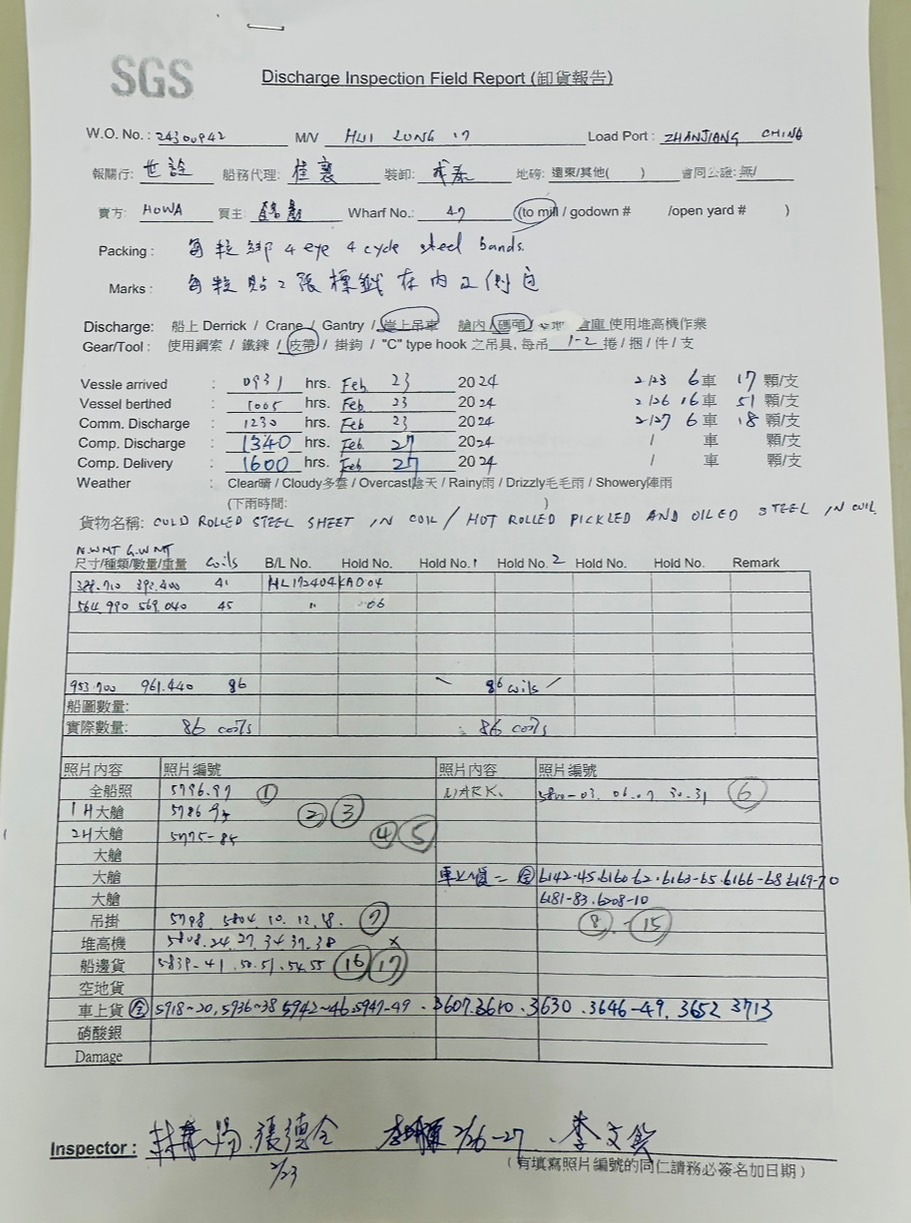 SGS
Discharge Inspection Field Report (卸貨報告)
W.O. No. : 24300942 M/V HUI LONG 17 Load Port : ZHANJIANG CHINA
報關行: 世詮 船務代理: 佳襄 裝卸: 地磅: 還東/其他( ) 會同公證: 無/
賣方: HOWA 買主: Wharf No.: 47 (to mill / godown # /open yard # )
Packing : 每粒綁 4 eye 4 cycle steel bands.
Marks : 每粒貼2張標籤在內及側邊
Discharge: 船上 Derrick / Crane / Gantry / 岸上吊車 艙內 / 碼頭 / 倉庫 使用堆高機作業
Gear/Tool : 使用鋼索 / 鐵鍊 / 皮帶 / 掛鉤 / "C" type hook 之吊具, 每吊 1-2 捲 / 捆 / 件 / 支
Vessle arrived : 0931 hrs. Feb 23 2024 2/23 6車 17 顆/支
Vessel berthed : 1005 hrs. Feb 23 2024 2/26 16車 51 顆/支
Comm. Discharge : 1230 hrs. Feb 23 2024 2/27 6車 18 顆/支
Comp. Discharge : 1340 hrs. Feb 27 2024 / 車 顆/支
Comp. Delivery : 1600 hrs. Feb 27 2024 / 車 顆/支
Weather : Clear晴 / Cloudy多雲 / Overcast陰天 / Rainy雨 / Drizzly毛毛雨 / Showery陣雨
(下雨時間: )
貨物名稱: COLD ROLLED STEEL SHEET IN COIL / HOT ROLLED PICKLED AND OILED STEEL IN COIL
N.WMT G.WMT
尺寸/種類/數量/重量 Coils B/L No. Hold No. Hold No. 1 Hold No. 2 Hold No. Hold No. Remark
388.710 392.400 41 HL172404KA004
564.990 569.040 45 " 06
953.700 961.440 86 86 coils
船圖數量:
實際數量: 86 coils 86 coils
照片內容 照片編號 照片內容 照片編號
全船照 5796.97 ① MARK. 5800-03. 06.07. 30.31 ⑥
1H大艙 5786 ② ③
2H大艙 5775-85 ④ ⑤
大艙
大艙 6142-45.6160 62.6163-65.6166-68 6169-70
大艙 6181-83.6208-10
吊掛 5798. 5804. 10. 12. 18. ⑦ ⑧ - ⑮
堆高機 5808.24.27.34 37.38 x
船邊貨 5839-41.50.51.54.55 ⑯ ⑰
空地貨
車上貨 全 5918~20, 5936~38 5942~46.5947-49 . 3607.3610 . 3630 .3646-49. 3652 3713
硝酸銀
Damage
Inspector : 張德全 2/26-27 、李文
2/23
(有填寫照片編號的同仁請務必簽名加日期)